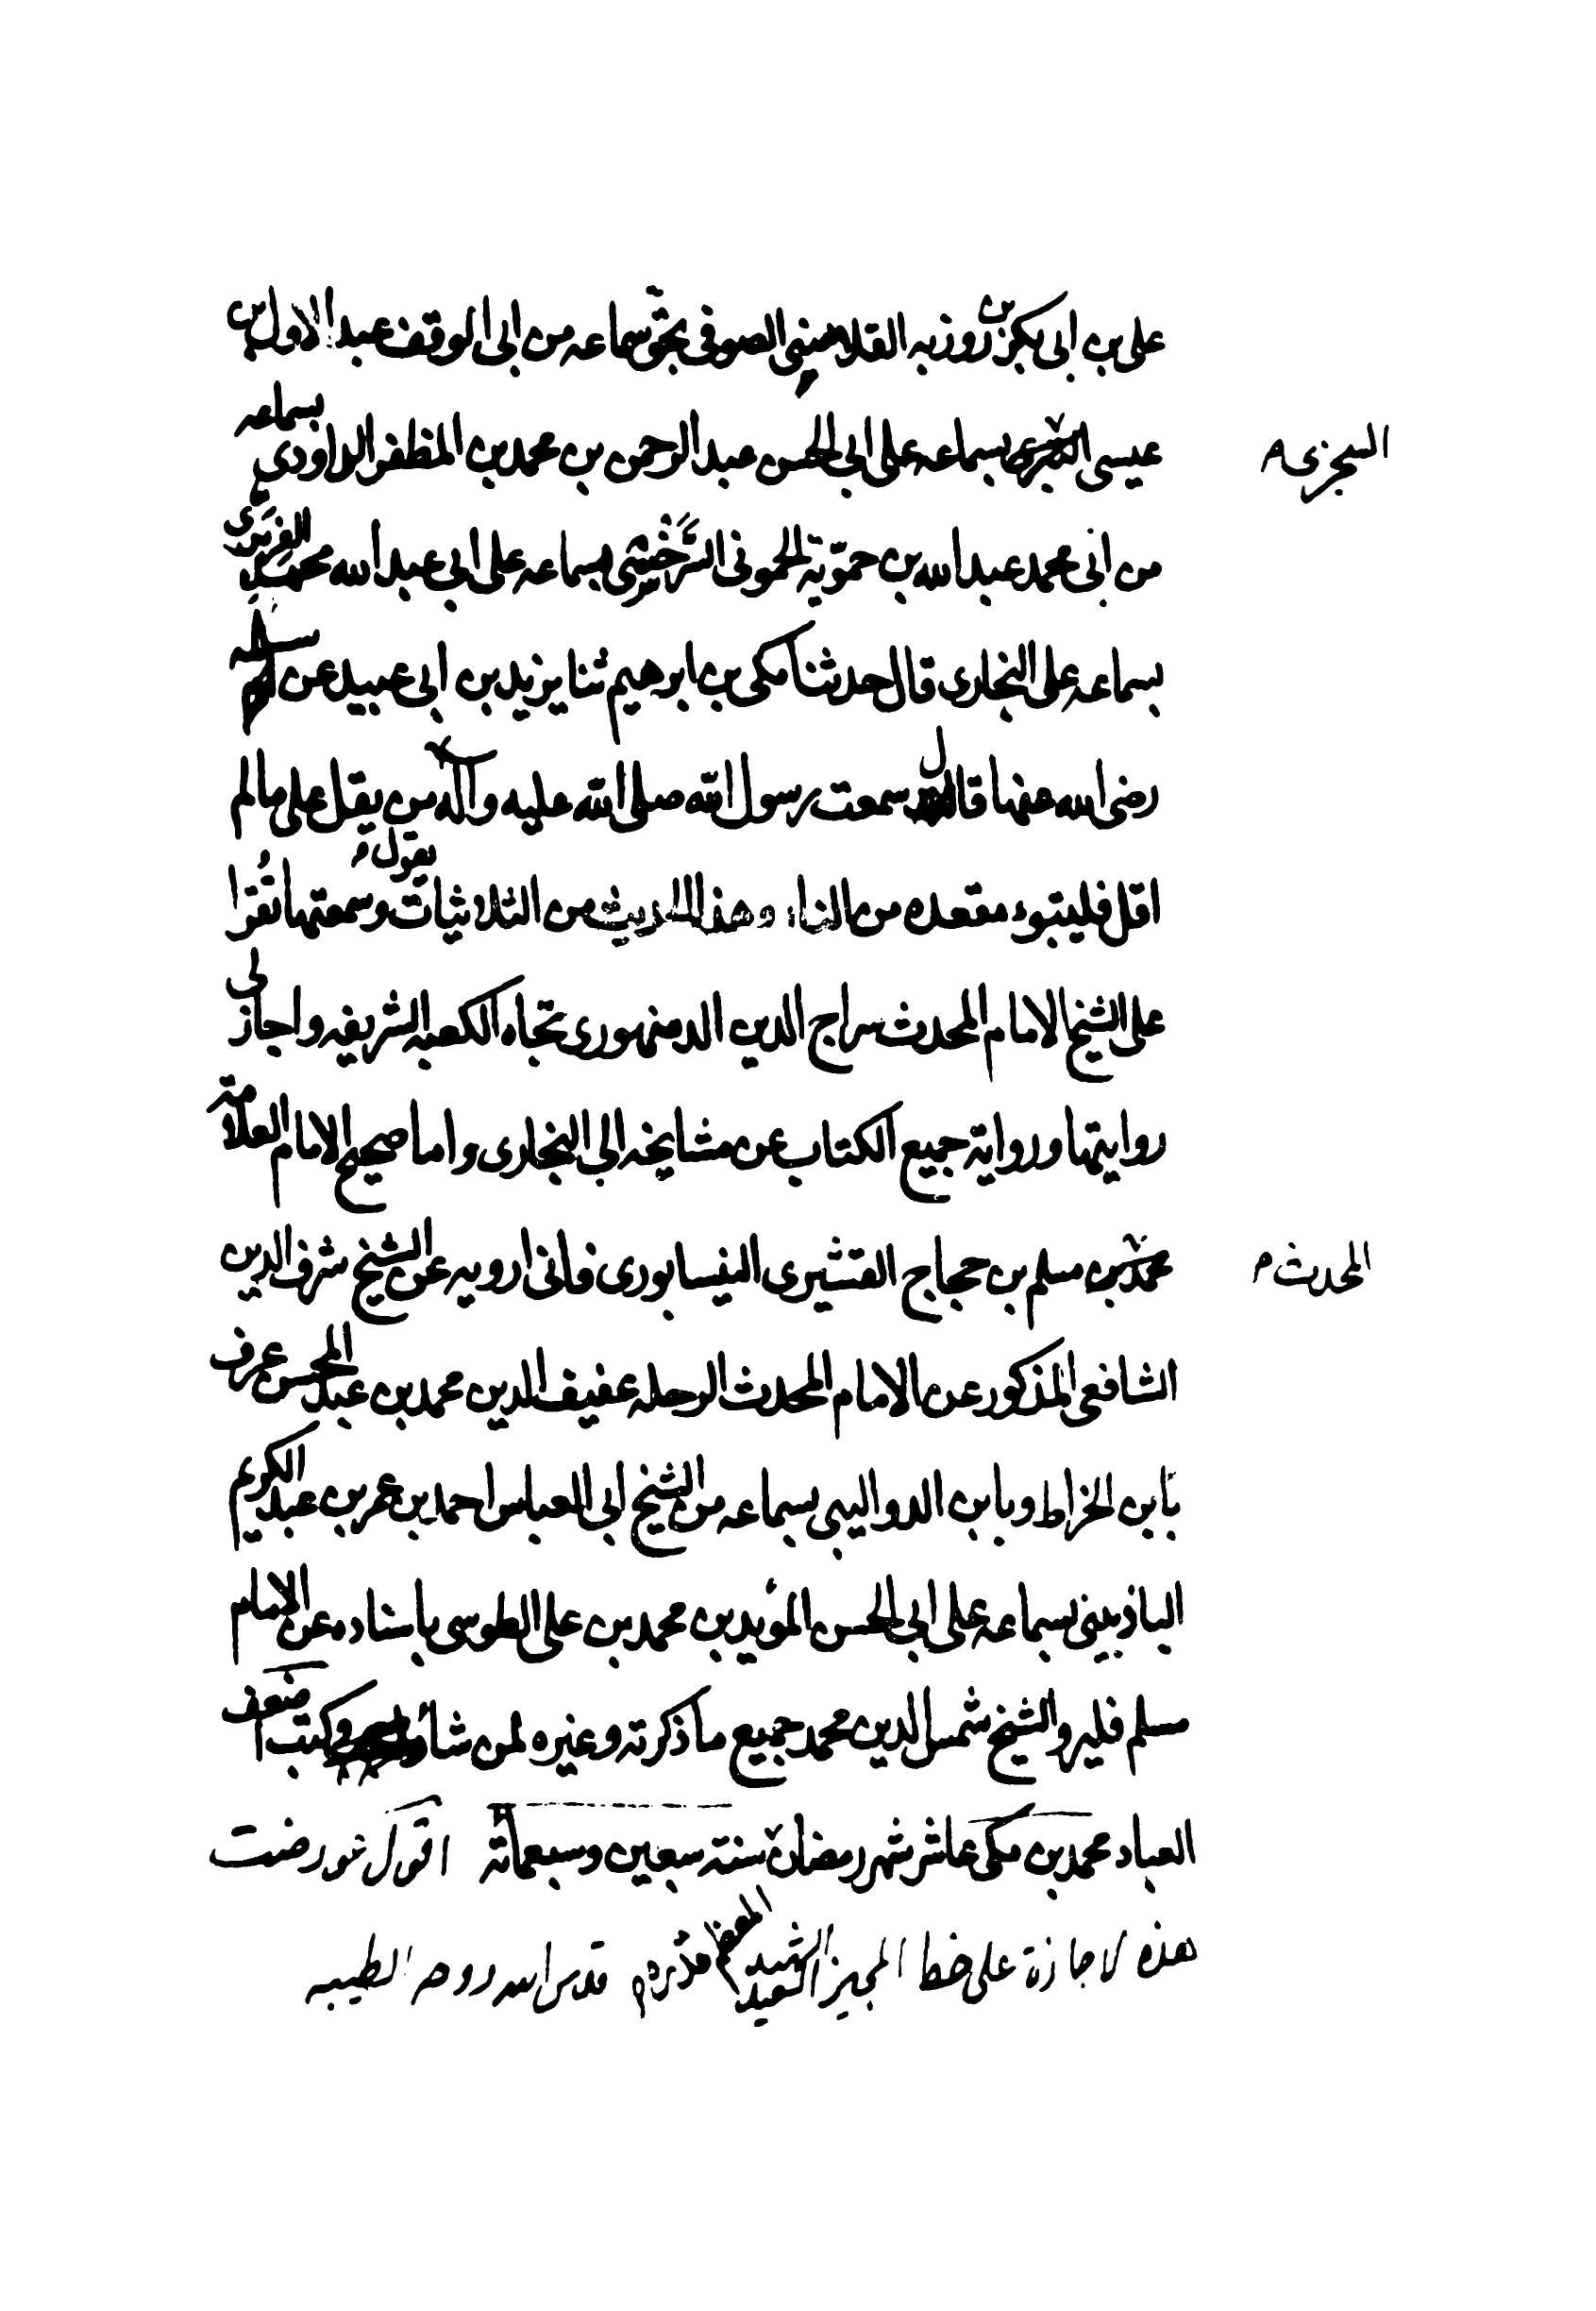 على بن ابى بكر بن روزبه القلانسى الصوفى بحق سماعه من ابى الوقت عبد الاول بن
عيسى السجزى بسماعه على ابى الحسن عبد الرحمن بن محمد بن المظفر الداودى بسماعه
السجزى
من ابى محمد عبد الله بن حمّويّة الحموى السَّرَخْسِى بسماعه على ابى عبد الله محمد الفربرى
بسماعه على البخارى قال حدثنا مكى بن ابرهيم ثنا يزيد بن ابى عبيد عن سلمه
رضى الله عنهما قال سمعت رسول الله صلى الله عليه وآله من يقل على مالم
يقول
اقل فليتبوء مقعده من النار وهذا الحديث من الثلاثيات وسمعتها تُقرا
على الشيخ الامام المحدث سراج الدين الدمنهورى تجاه الكعبه الشريفه واجاز لى
روايتها ورواية جميع الكتاب عن مشايخه الى البخارى واما صحيح الامام العلامة
محمد بن مسلم بن حجاج القشيرى النيسابورى فانى ارويه عن الشيخ شرف الدين
المحدث م
الشافعى المذكور عن الامام المحدث الرحله عفيف الدين محمد بن عبد المحسن عرف
بابن الخراط وبابن الدواليبى بسماعه من الشيخ ابى العباس احمد بن عمر بن عبد الكريم
الباذبينى بسماعه على ابى الحسن المؤيد بن محمد بن على الطوسى باسناده عن الامام
مسلم فليرو الشيخ شمس الدين محمد جميع ما ذكرته وغيره لمن شاء وكتب اضعف
العباد محمد بن مكى عاشر شهر رمضان سنة سبعين وسبعمائة اقول عورضت
هذه الاجازة على خط المجيز الشهيد السعيد قدس الله روحه الطيبه